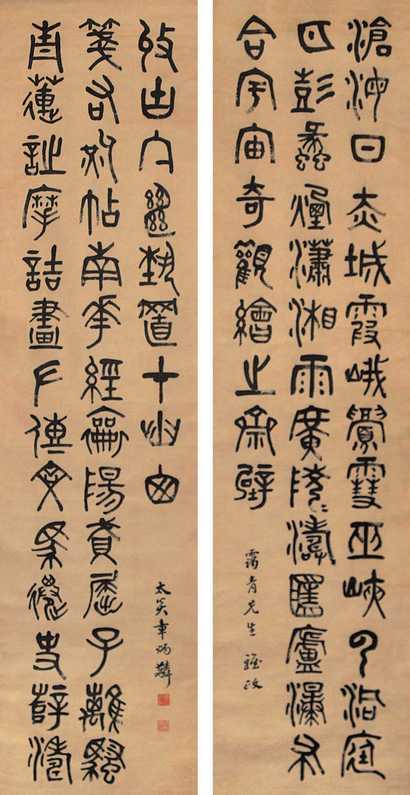 滄海日赤城霞峨眉雪巫峽云洞庭
月彭蠡煙瀟湘雨廣陵濤匡廬瀑布
合宇宙奇觀繪之齋壁
靄青先生雅政
青蓮詩摩詰畫左傳文馬遷史薛濤
箋右軍帖南華經陽賦屈子離騷
收古今絕藝置山窗
太炎章炳麟